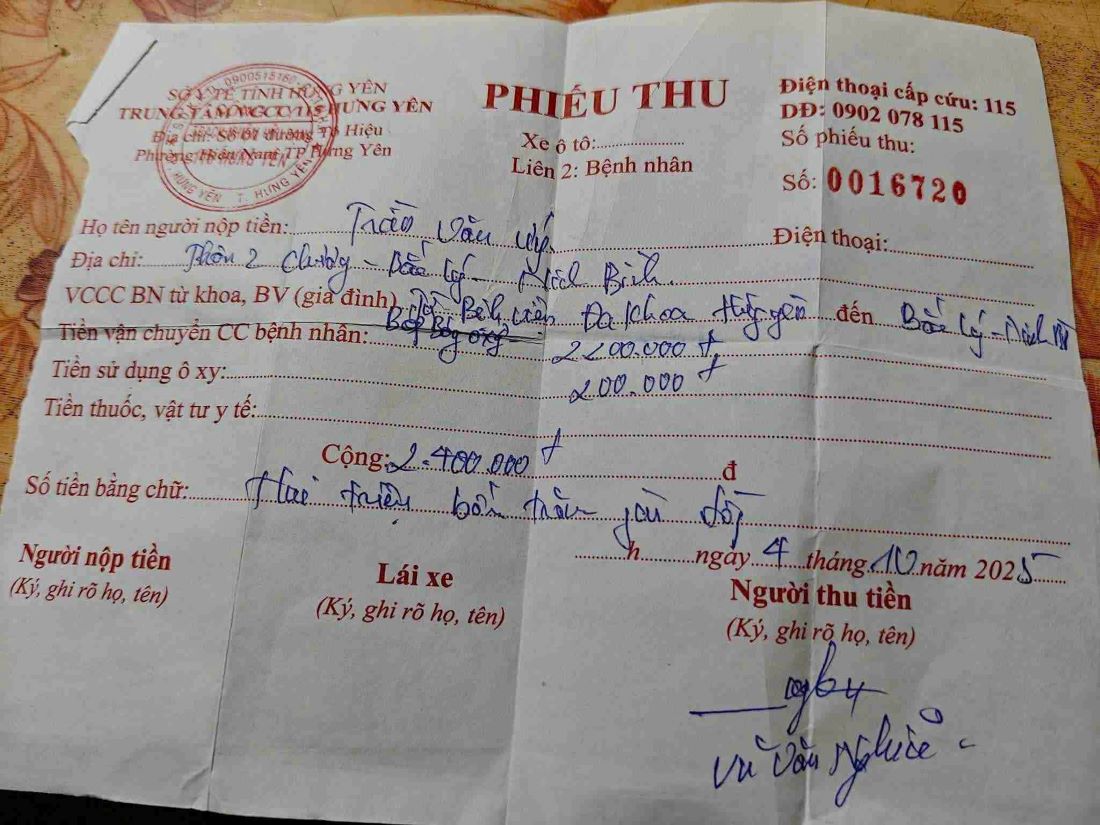 SỞ Y TẾ TỈNH HƯNG YÊN
TRUNG TÂM VCCC 115 HƯNG YÊN
Địa chỉ: Số 01 đường Tô Hiệu
Phường Hiến Nam TP Hưng Yên
0900515160
HƯNG YÊN T. HƯNG YÊN
PHIẾU THU
Xe ô tô:
Liên 2: Bệnh nhân
Điện thoại cấp cứu: 115
DĐ: 0902 078 115
Số phiếu thu:
Số: 0016720
Họ tên người nộp tiền: Trần Văn Điện thoại:
Địa chỉ: Thôn 2 - Bắc Lý - Ninh Bình
VCCC BN từ khoa, BV (gia đình) Từ Bệnh viện Đa khoa Hưng yên đến Bắc Lý - Ninh
Tiền vận chuyển CC bệnh nhân: Bóp Bóng oxy 2200.000 đ
Tiền sử dụng ô xy: 200.000 đ
Tiền thuốc, vật tư y tế:
Cộng: 2.400.000 đ đ
Số tiền bằng chữ: Hai triệu bốn trăm đồng
h ngày 4 tháng 10 năm 2025
Người nộp tiền
(Ký, ghi rõ họ, tên)
Lái xe
(Ký, ghi rõ họ, tên)
Người thu tiền
(Ký, ghi rõ họ, tên)
Vũ Văn